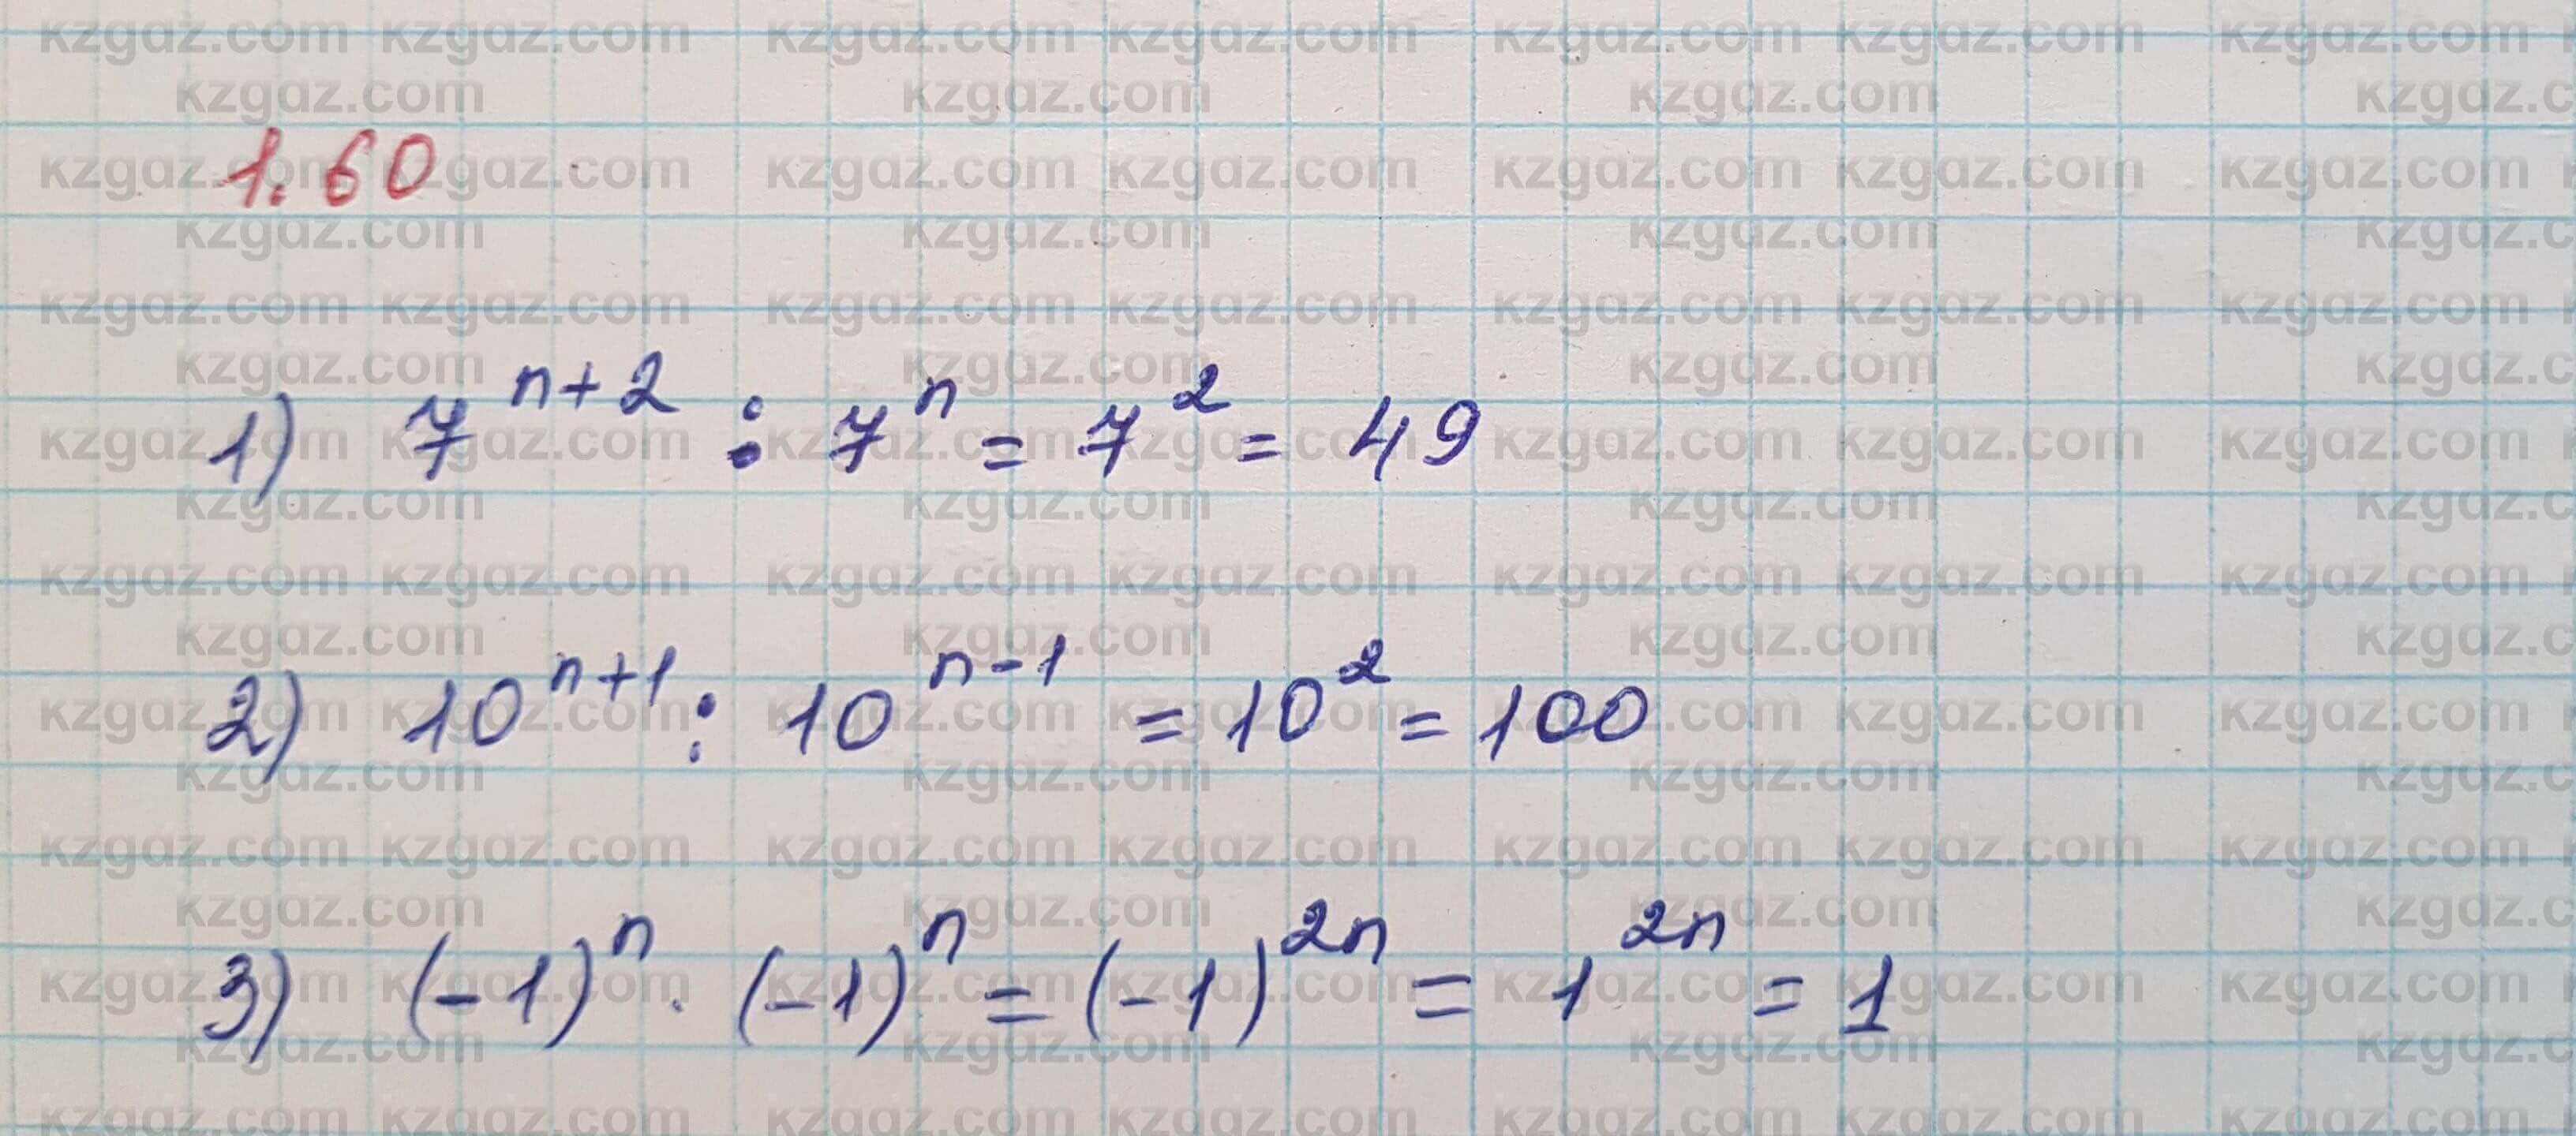 1.60
1) 7^(n+2) : 7^n = 7^2 = 49
2) 10^(n+1) : 10^(n-1) = 10^2 = 100
3) (-1)^n · (-1)^n = (-1)^(2n) = 1^(2n) = 1
kzgdz.com